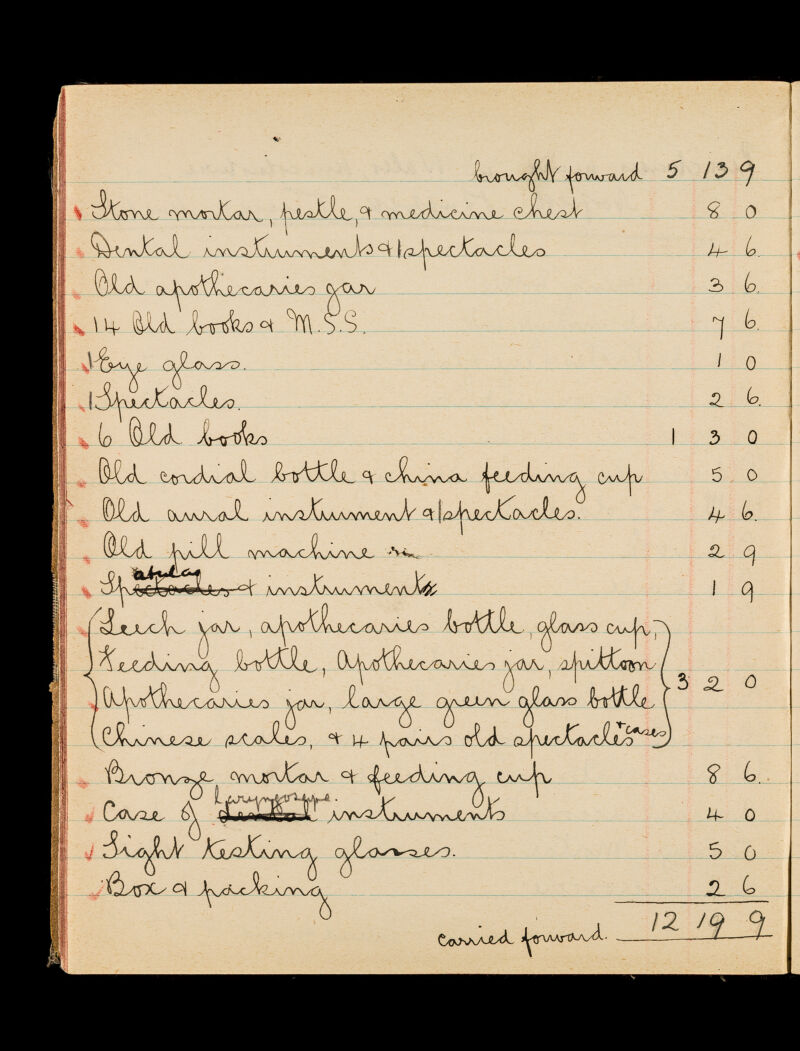 brought forward 5 13 9
Stone mortar, pestle, & medicine chest 8 0
Dental instruments & 1 spectacles 4 6.
Old apothecaries jar 3 6.
14 Old books & M.S.S. 7 6.
1 Eye glass. 1 0
1 Spectacles. 2 6.
6 Old books 1 3 0
Old cordial bottle & china feeding cup 5 0
Old aural instrument & 1 spectacles. 4 6.
Old pill machine 2 9
atulas
Spectacles & instruments 1 9
Leech jar, apothecaries bottle, glass cup,
Feeding bottle, Apothecaries jar, spittoon
Apothecaries jar, large green glass bottle 3 2 0
Chinese scales, & 4 pairs old spectacles + cases
Bronze mortar & feeding cup 8 6.
laryngoscope
Case of dental instruments 4 0
Sight testing glasses. 5 0
Box & packing 2 6
carried forward. 12 19 9